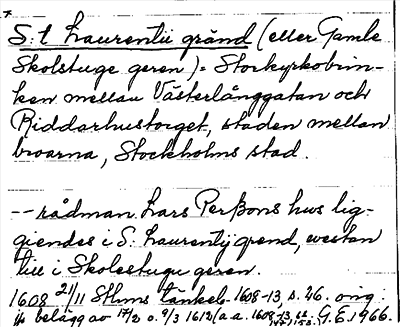 S:t Laurentii gränd (eller Gamle
Skolstuge geren) = Storkyrkobrin-
ken mellan Västerlånggatan och
Riddarhustorget, staden mellan
broarna, Stockholms stad.
-- rådman Lars Perßons hus lig-
giendes i S: Laurentij grend, westan
till i Skolestugu geren.
1608 21/11 Sthms tänkeb. 1608-13, s. 46. orig.
belägg av 17/2 o. 9/3 1612 (a.a. 1608-13, G.E. 1966.